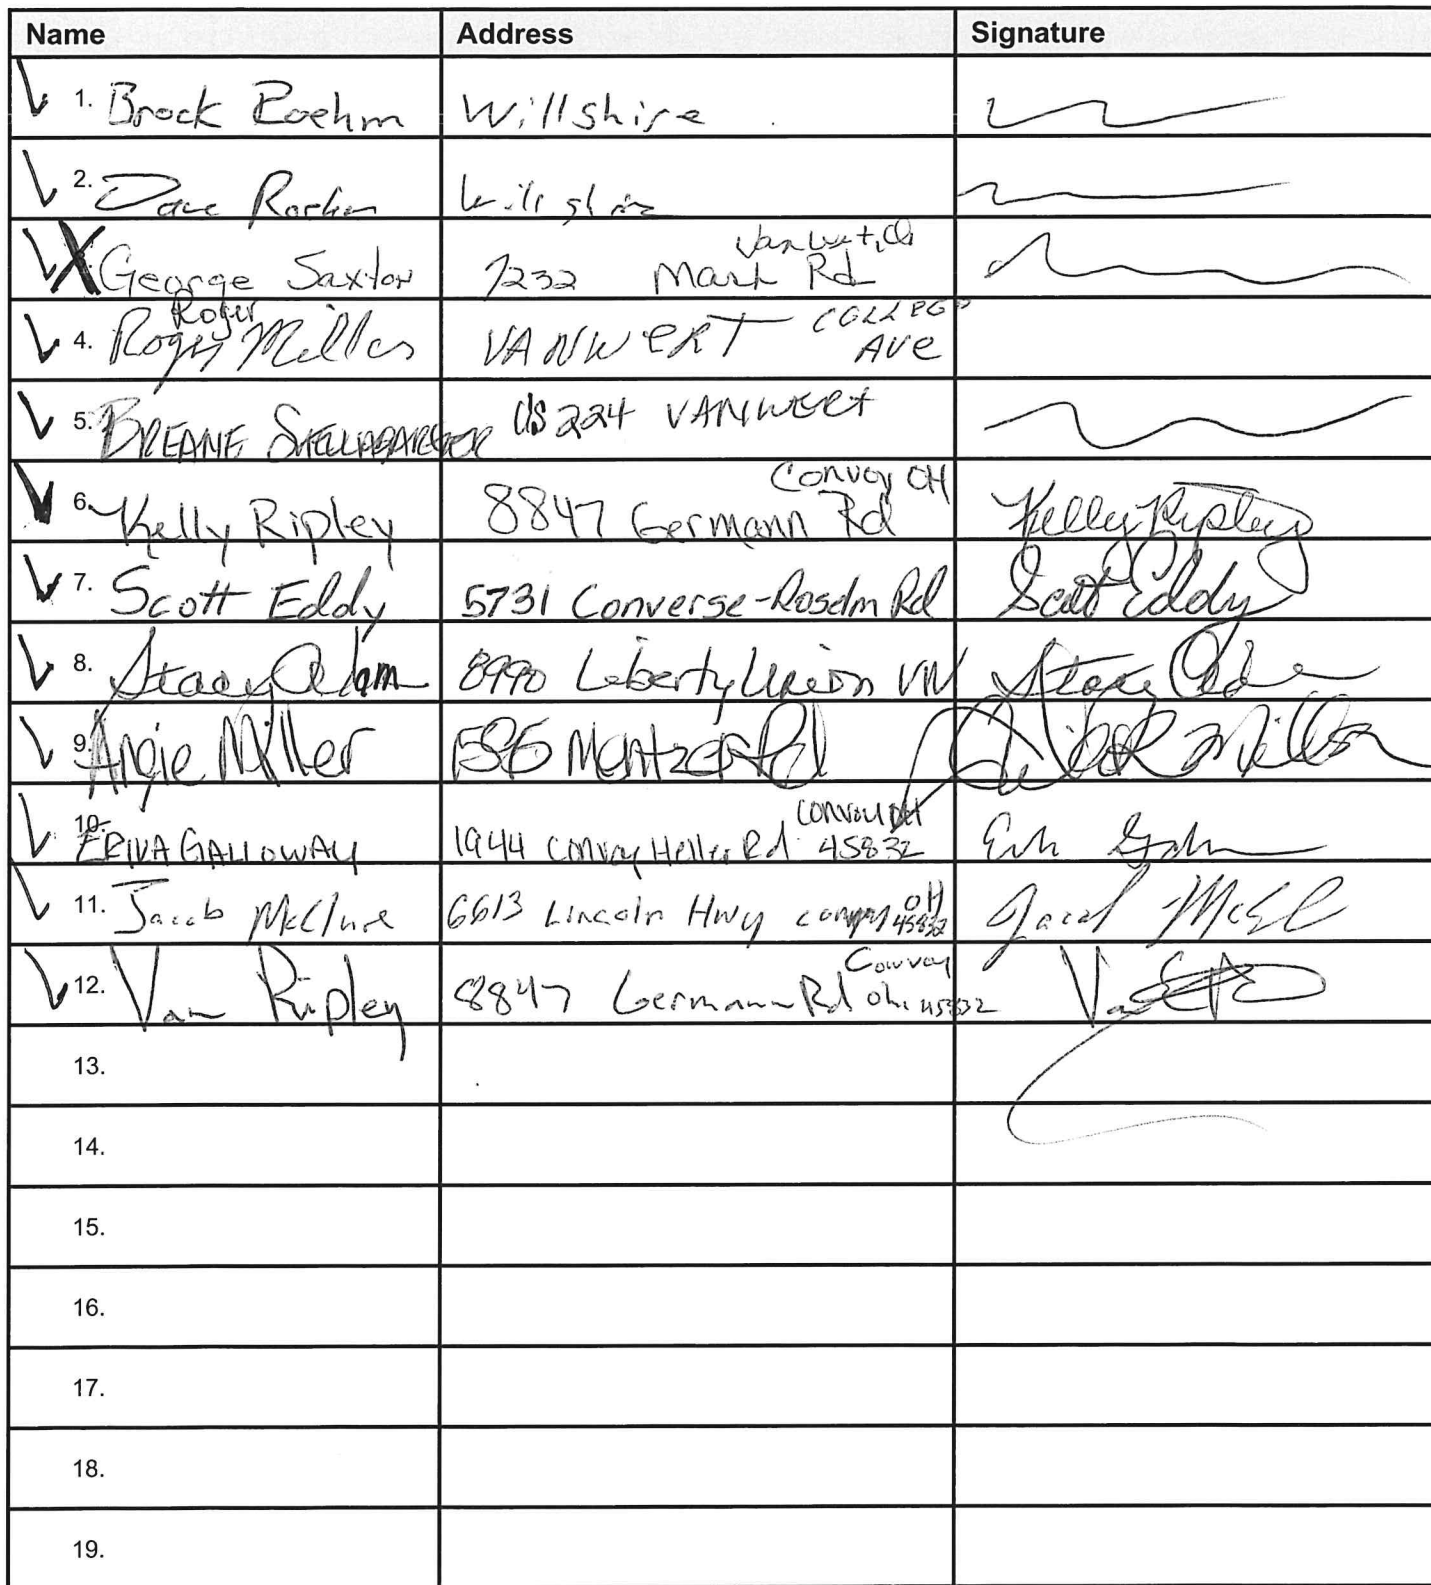 Name Address Signature
1. Brock Roehm Willshire
2. Dave Roehm Willshire
George Saxton 7232 Mark Rd Van Wert, Oh
4. Roger Miller Roger VANWERT COLLEGE AVE
5. BREANE SHELLABARGER US 224 VANWERT
6. Kelly Ripley 8847 Germann Rd Convoy OH Kelly Ripley
7. Scott Eddy 5731 Converse-Roselm Rd Scott Eddy
8. Stacy Adam 8990 Liberty Union VW Stacy Adam
9. Angie Miller Mentzer Rd Miller
10. ERIKA GALLOWAY 1944 Convoy Heller Rd Convoy OH 45832
11. Jacob McClure 6613 Lincoln Hwy Convoy OH 45832 Jacob
12. Van Ripley 8847 Germann Rd Convoy Oh. 45832 Van
13.
14.
15.
16.
17.
18.
19.